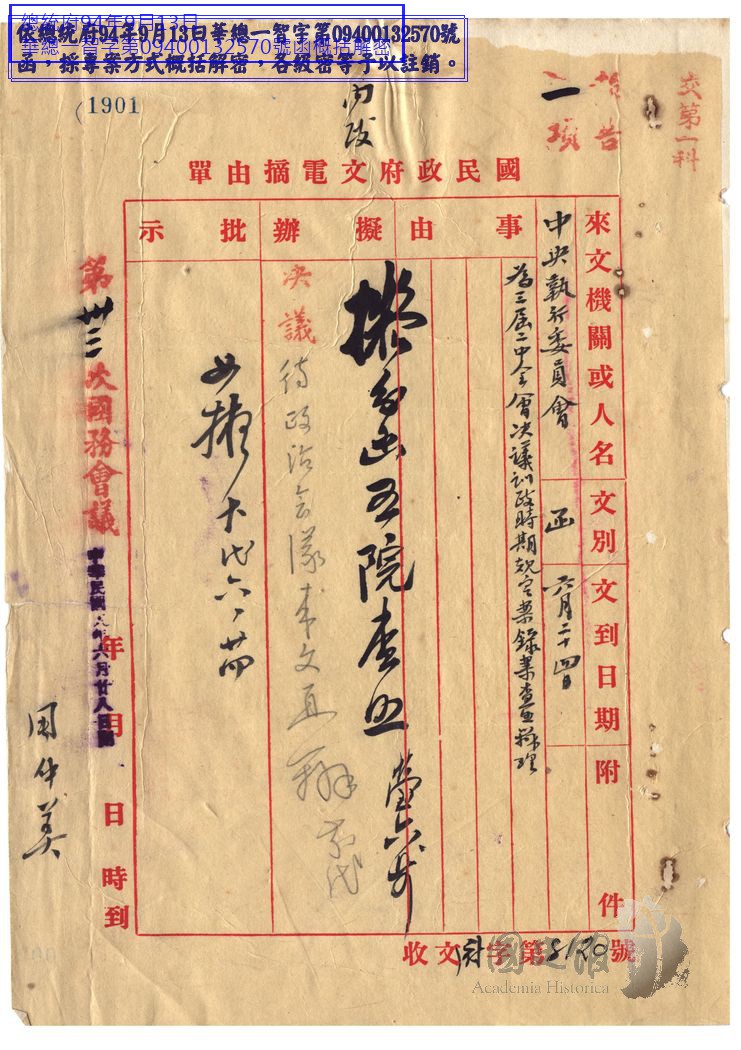 總統府94年9月13日
華總一智字第09400132570號函概括解密
依總統府94年9月13日華總一智字第09400132570號
函，採專案方式概括解密，各級密等予以註銷。
(1901
交第一科
報告
一
內政
國民政府文電摘由單
來文機關或人名
中央執行委員會
文別
函
文到日期
六月二十四日
附件
事由
為三屆二中全會決議訓政時期規定案錄案查照辦理
擬辦
擬分函五院查照
決議
待政治會議來文再辦
批示
如擬
六、廿四
第卅二次國務會議
中華民國十八年六月廿八日
年月日時到
周仲美
收文府字第3120號
國史館
Academia Historica